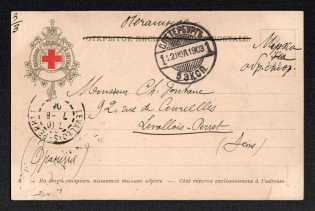 3/3
Печатное
ОТКРЫТОЕ ПИСЬМО
Марка
на
обороте.
С.ПЕТЕРБУРГЪ
1 12 ІЮЛ.1903 1
5 ЭКСП.
Monsieur Ch. Fontane
92, rue de Courcelles
Levallois-Perret
(Seine)
Франція
На этой сторонѣ пишется только адресъ. — Côté réservé exclusivement à l'adresse.